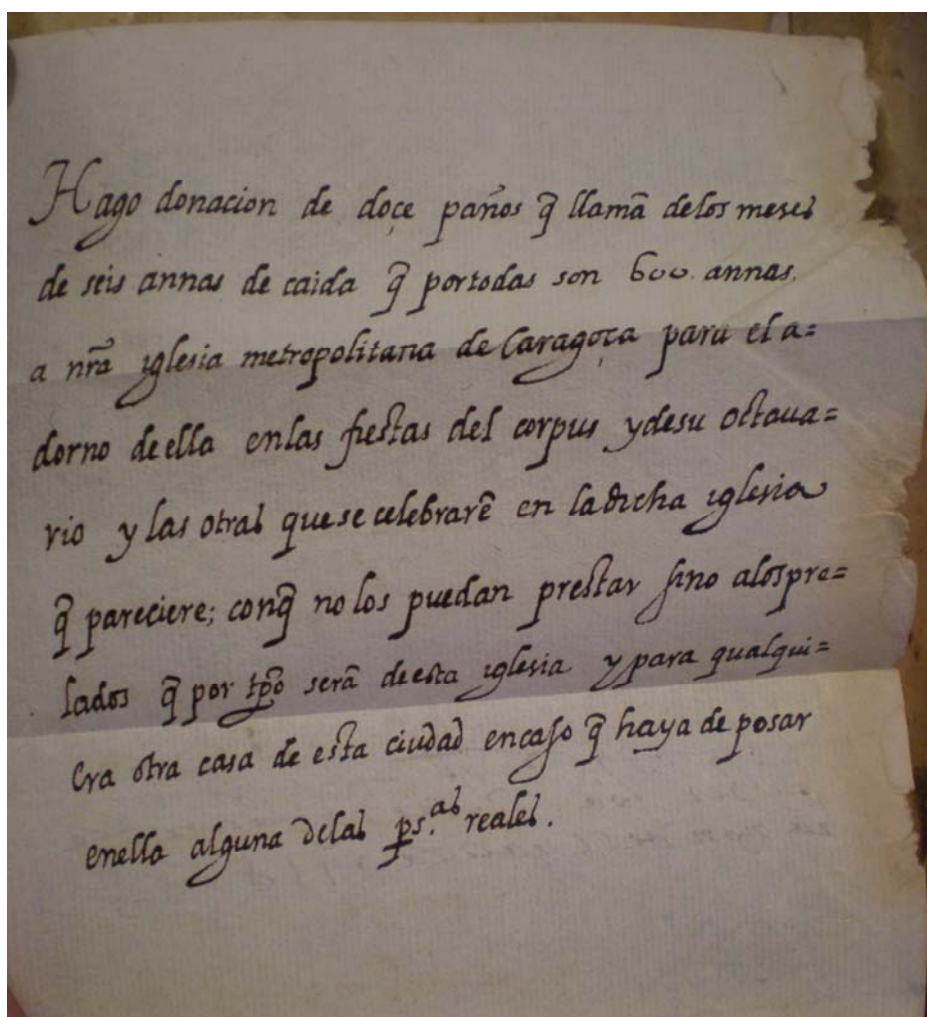 Hago donacion de doçe paños q̃ llamã delos meses
de seis annas de caida q̃ portodas son 600 annas.
a nr̃a iglesia metropolitana de Caragoça para el a=
dorno de ella enlas fiestas del corpus y desu octaua=
rio y las otras que se celebrarẽ en la dicha iglesia
q̃ pareciere; conq̃ no los puedan prestar sino alos pre=
lados q̃ por tpõ serã de esta iglesia y para qualqui=
era otra casa de esta ciudad encaso q̃ haya de posar
enella alguna delas ps.ᵃˢ reales.